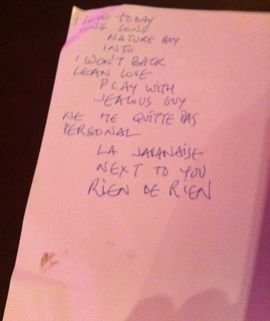 I LOVED TODAY
LONG LONG
NATURE BOY
INTO
I WON'T BACK
LEAN LOVE
PLAY WITH
JEALOUS GUY
NE ME QUITTE PAS
PERSONAL
LA JAVANAISE
NEXT TO YOU
RIEN DE RIEN